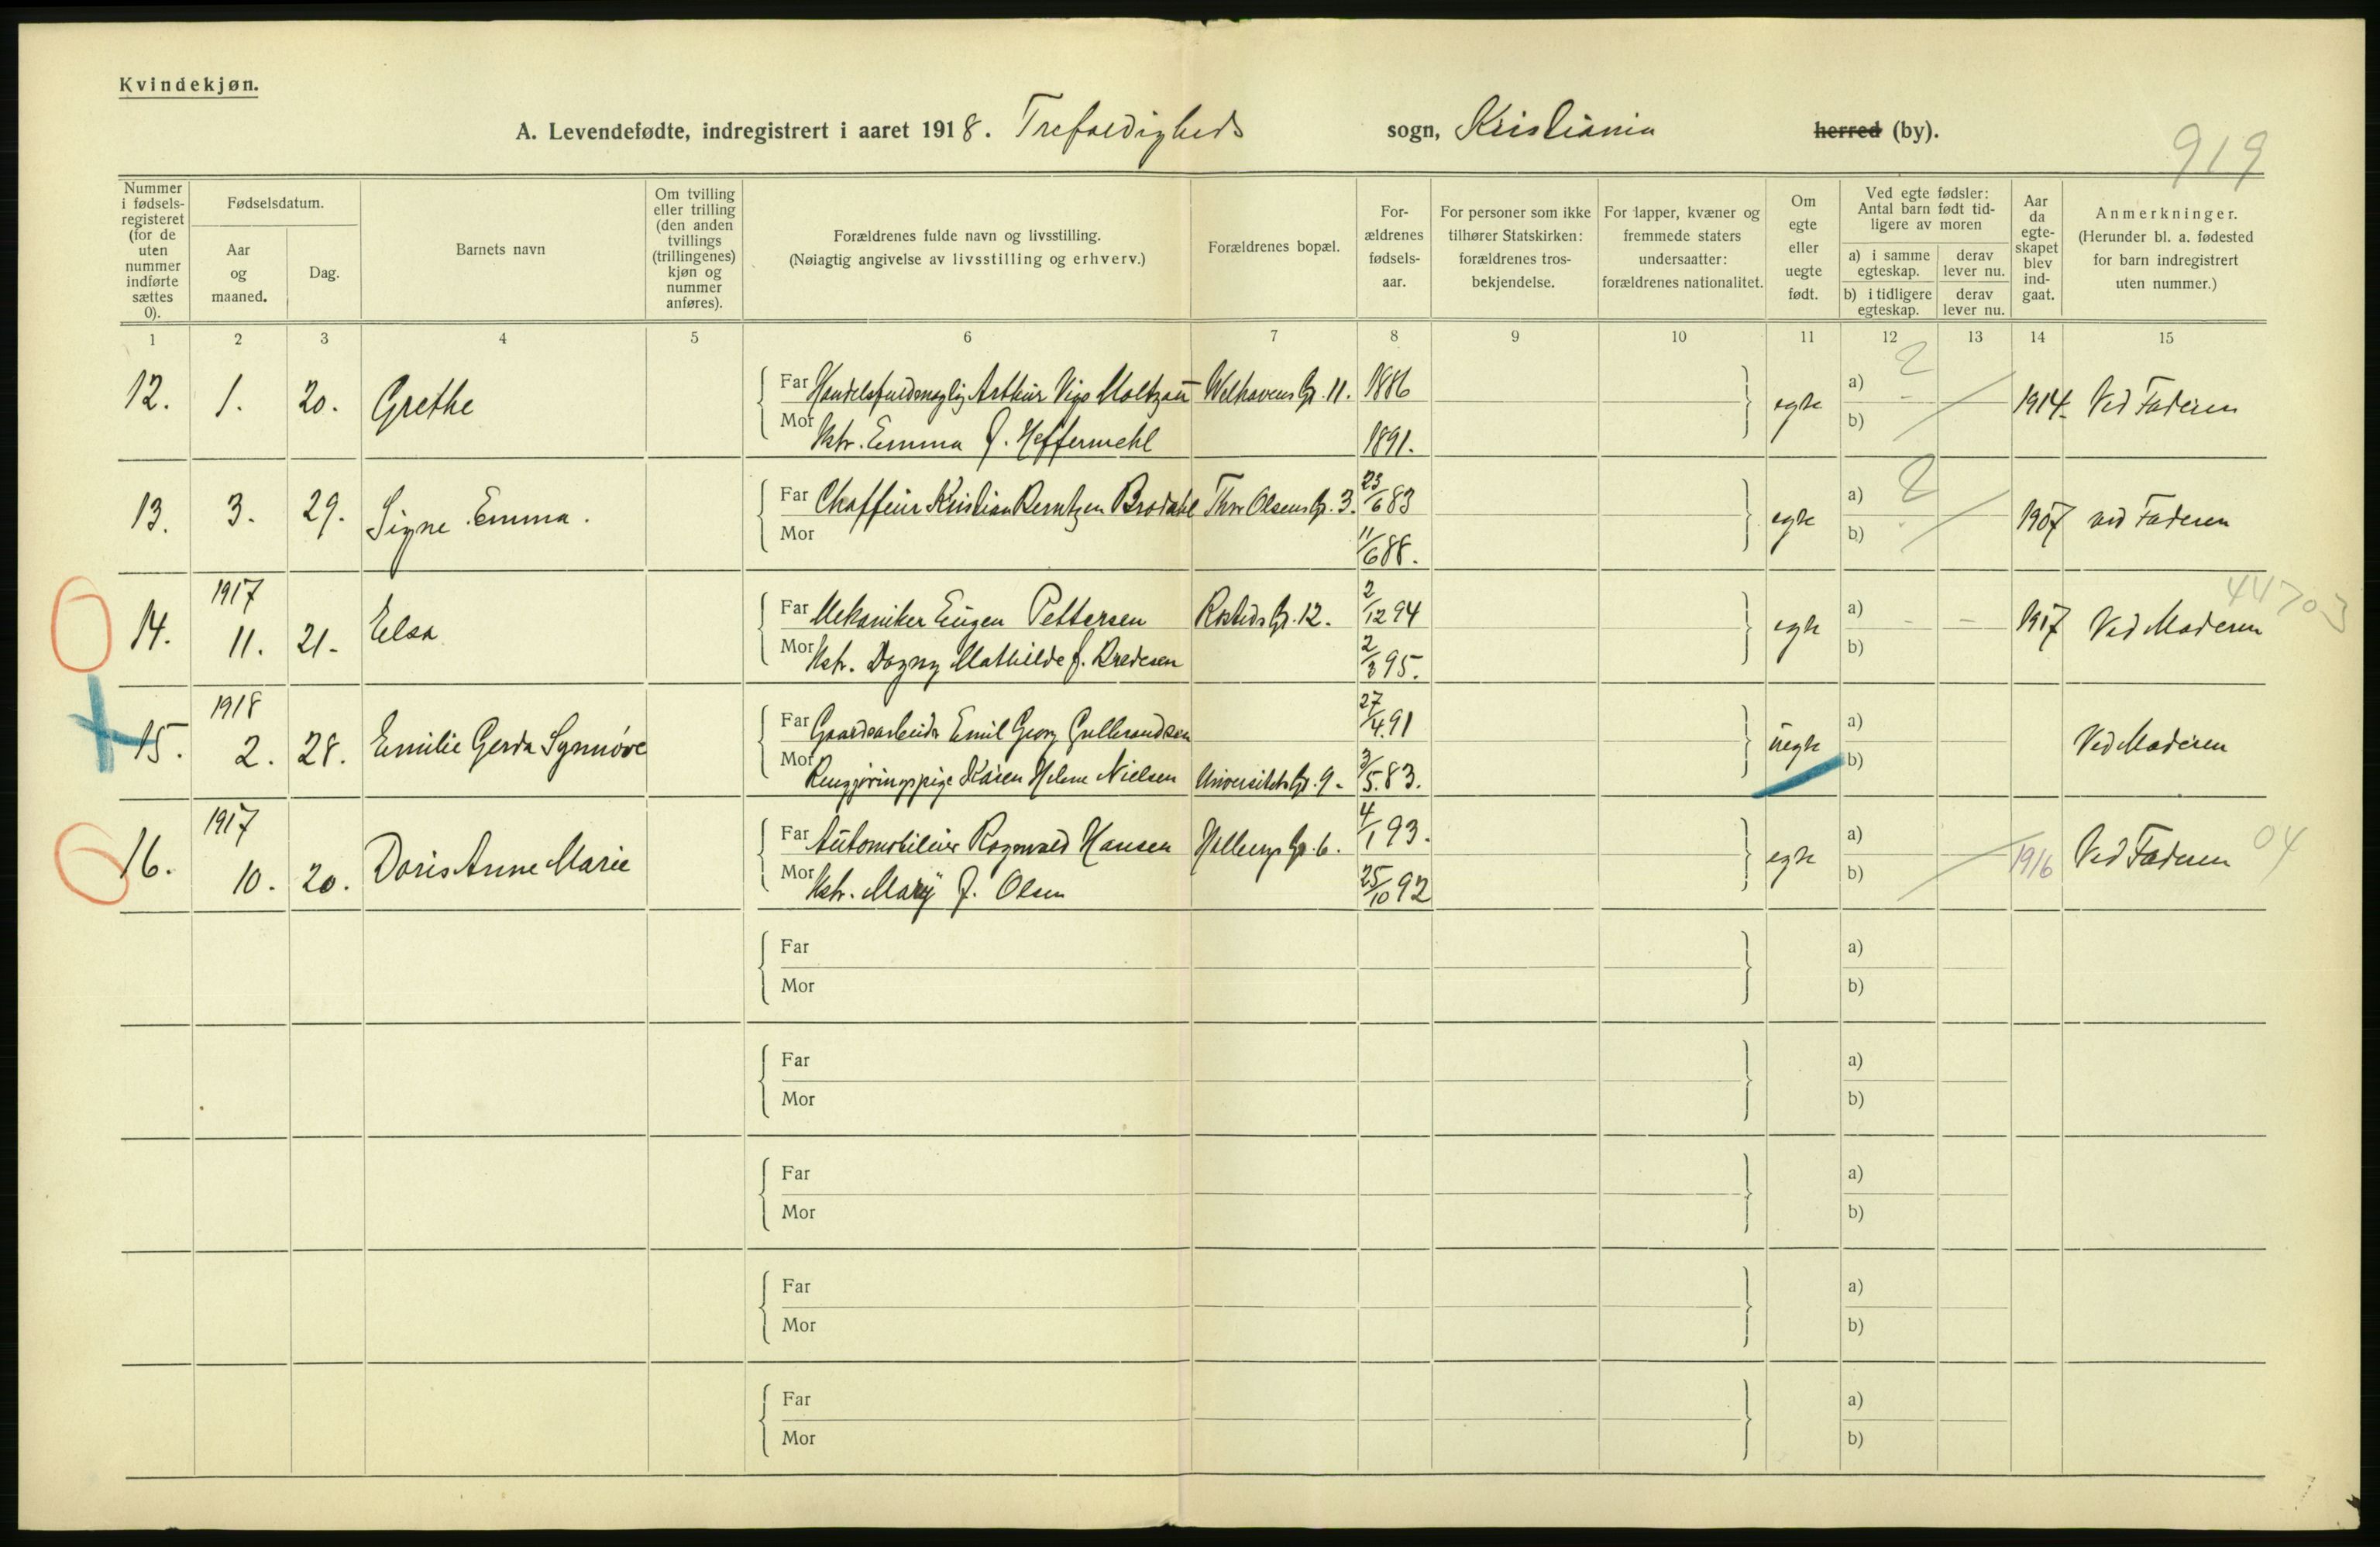 Kvindekjøn.
A. Levendefødte, indregistrert i aaret 1918. Trefoldigheds sogn, Kristiania herred (by).
919
Nummer i fødsels-registeret (for de uten nummer indførte sættes 0).
Fødselsdatum.
Aar og maaned.
Dag.
Barnets navn
Om tvilling eller trilling (den anden tvillings (trillingenes) kjøn og nummer anføres).
Forældrenes fulde navn og livsstilling.
(Nøiagtig angivelse av livsstilling og erhverv.)
Forældrenes bopæl.
For-ældrenes fødsels-aar.
For personer som ikke tilhører Statskirken: forældrenes tros-bekjendelse.
For lapper, kvæner og fremmede staters undersaatter: forældrenes nationalitet.
Om egte eller uegte født.
Ved egte fødsler: Antal barn født tid-ligere av moren
a) i samme egteskap.
derav lever nu.
b) i tidligere egteskap.
derav lever nu.
Aar da egte-skapet blev ind-gaat.
Anmerkninger.
(Herunder bl. a. fødested for barn indregistrert uten nummer.)
1 2 3 4 5 6 7 8 9 10 11 12 13 14 15
12. 1. 20. Grethe Far Handelsfuldmægtig Arthur Vigo Moltzau Welhavens Gt. 11. 1886 egte a) 2 1914 Ved Faderen
Mor Hstr. Emma f. Heffermehl 1891. b)
13. 3. 29. Signe Emma. Far Chaffeur Kristian Berntzen Brodahl Thv. Olsens Gt. 3. 23/6 83 egte a) 2 1907 ved Faderen
Mor 11/6 88. b)
1917
14. 11. 21. Elsa Far Mekaniker Eugen Pettersen Rosteds Gt. 12. 2/12 94 egte a) - - 1917 Ved Moderen 44703
Mor Hstr. Dagny Mathilde f. Bredesen 2/3 95. b)
1918
15. 2. 28. Emilie Gerda Synnøve Far Gaardsarbeider Emil Georg Gulbrandsen 27/4 91 uegte a) Ved Moderen
Mor Rengjøringspige Karen Helene Nielsen Universitets Gt. 9. 3/5. 83. b)
1917
16. 10. 20. Doris Anne Marie Far Automobileier Rognvald Hansen Gt. 6. 4/1 93. egte a) 1916 Ved Faderen 04
Mor Hstr. Mary f. Olsen 25/10 92 b)
Far a)
Mor b)
Far a)
Mor b)
Far a)
Mor b)
Far a)
Mor b)
Far a)
Mor b)